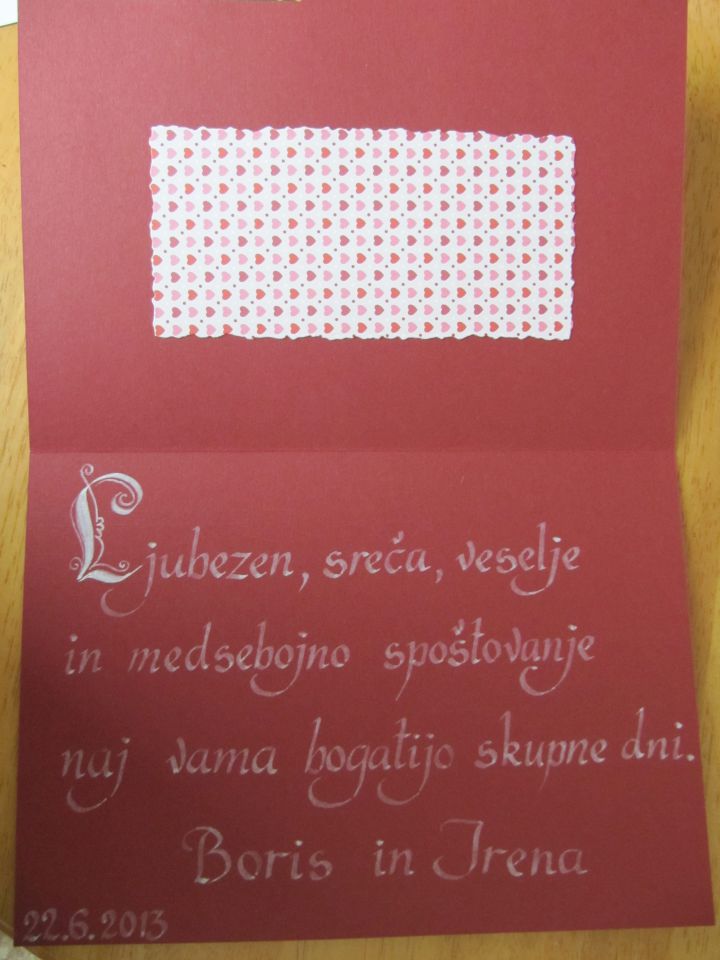 Ljubezen, sreča, veselje
in medsebojno spoštovanje
naj vama bogatijo skupne dni.
Boris in Irena
22.6.2013